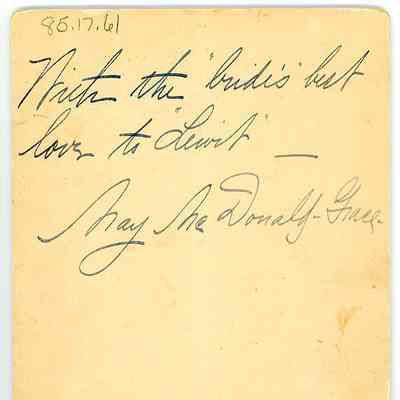 85.17.61
With the "bride's" best
love to "Lewit" —
May McDonald-Grace.